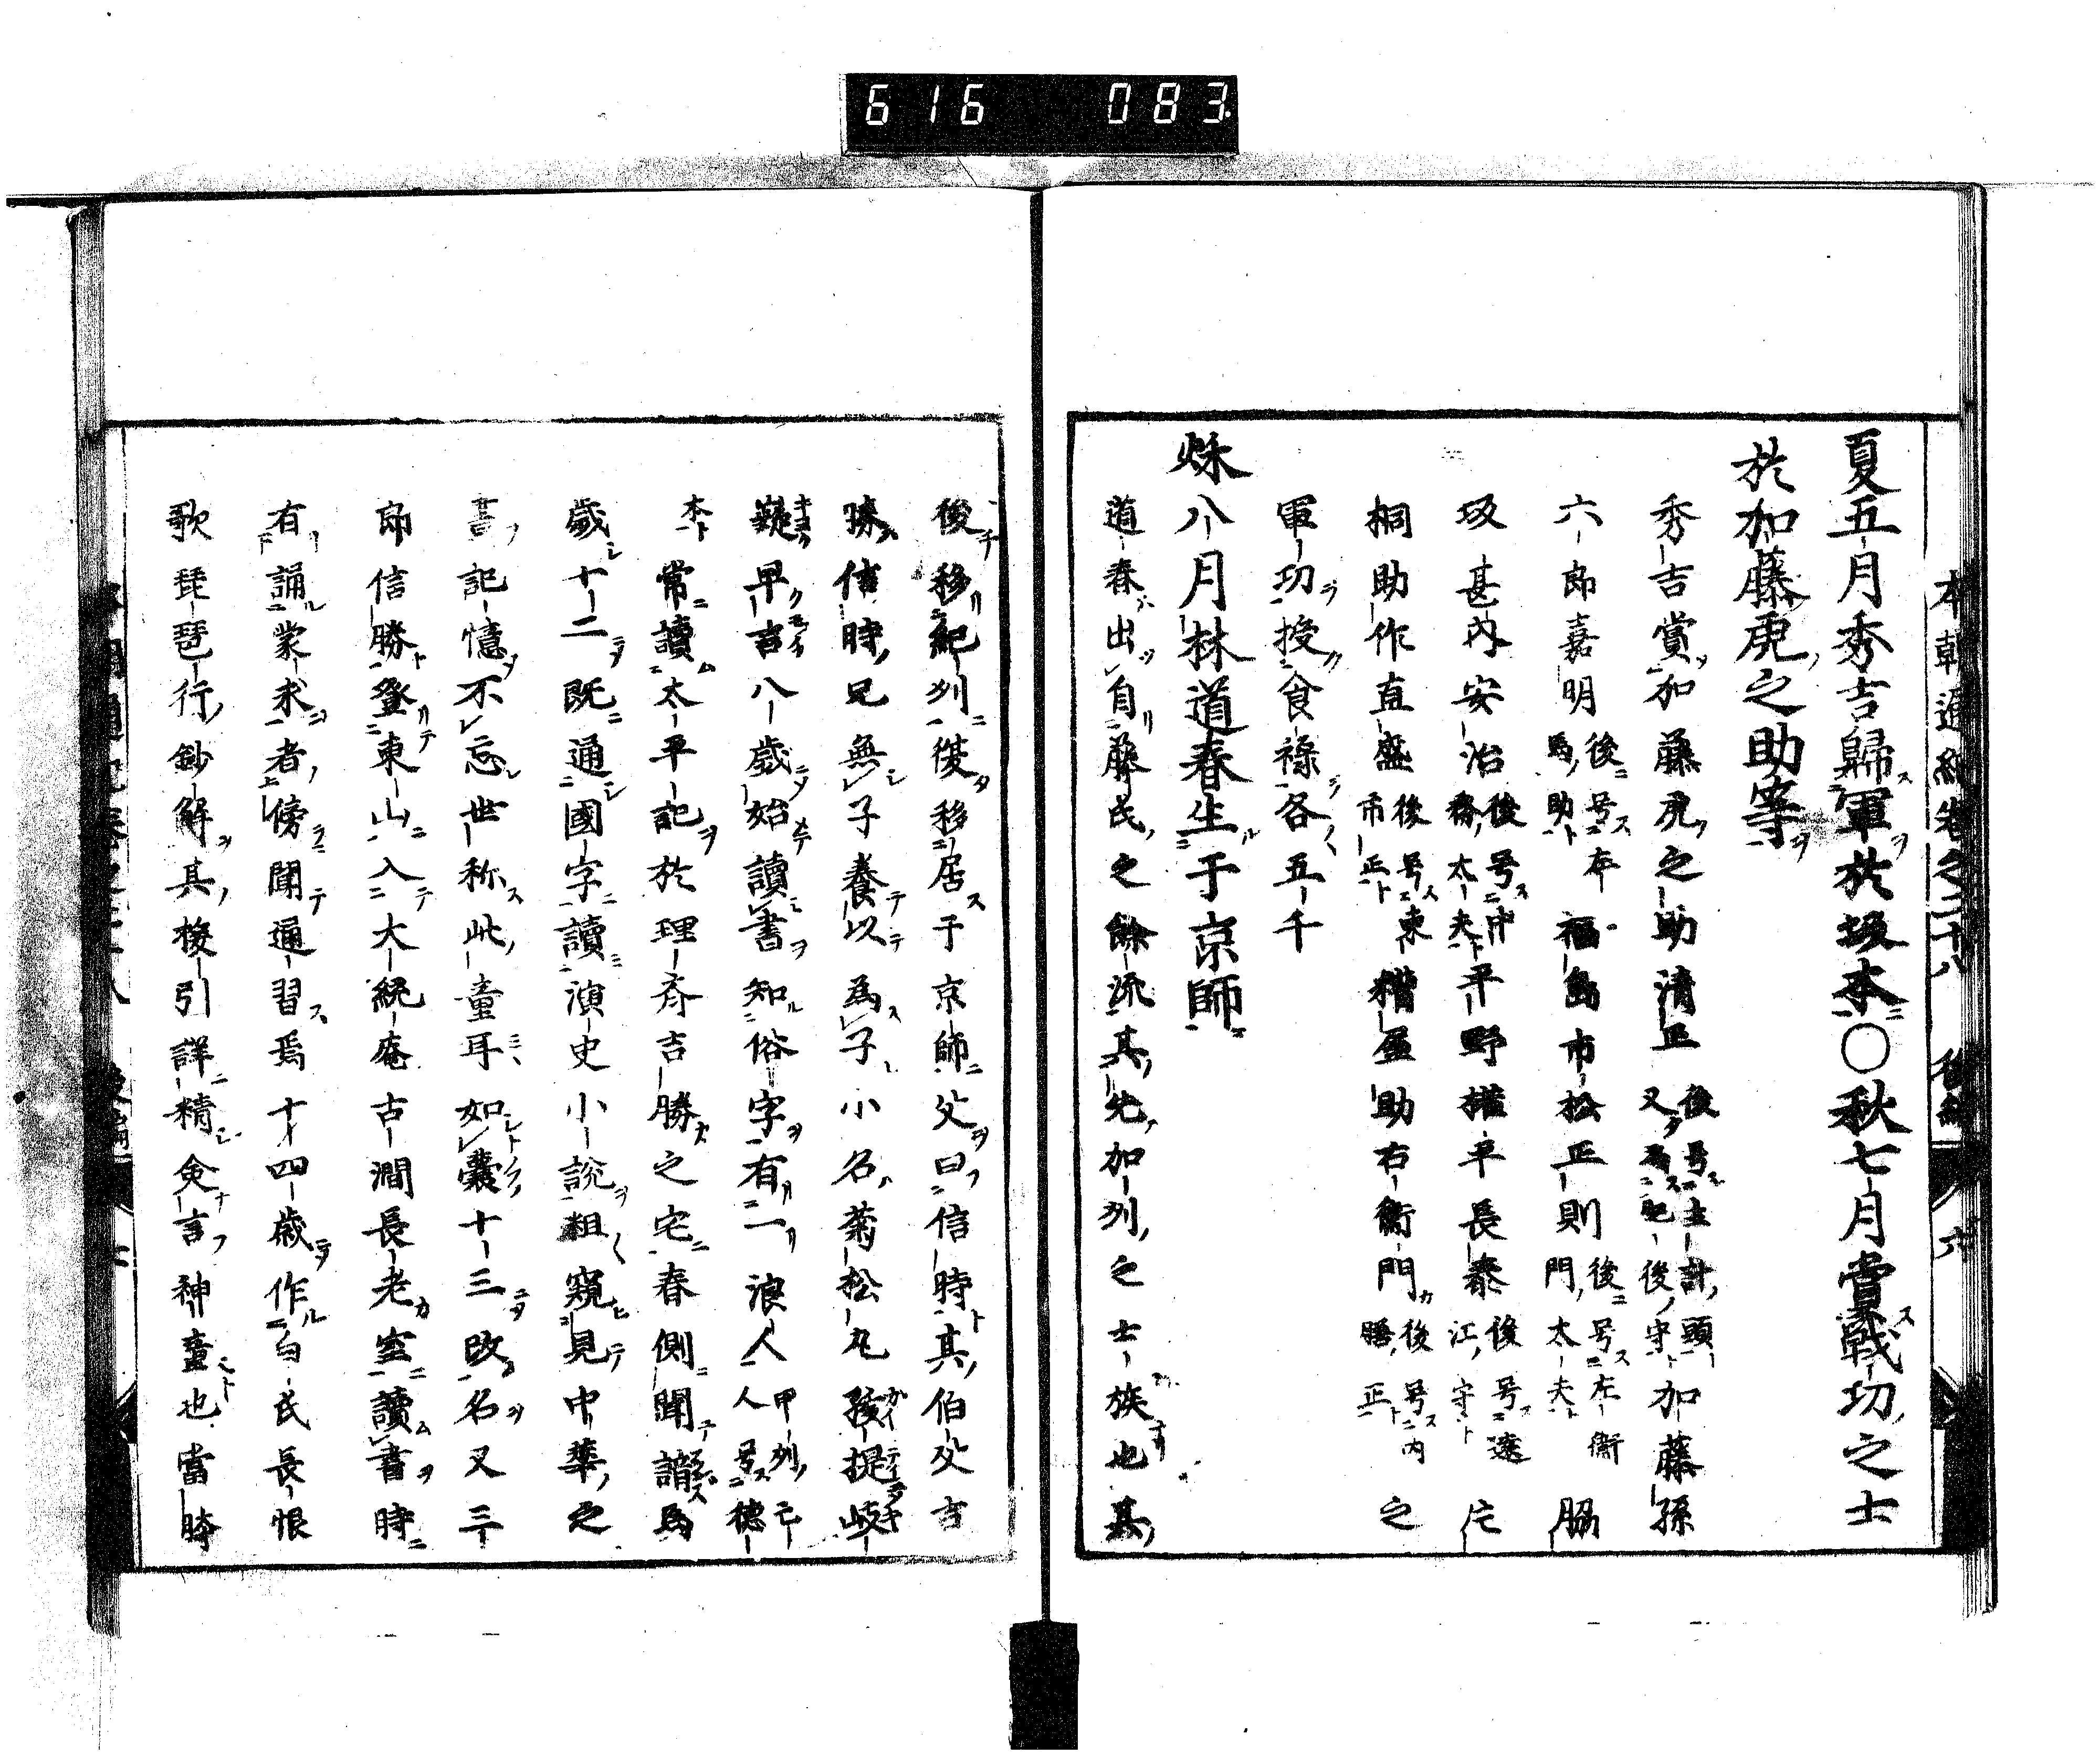 616 083
本朝通紀卷之二十八 後編 六
夏五月秀吉歸軍於坂本○秋七月賞戰功之士
於加藤虎之助等
秀吉賞加藤虎之助清正後号主計頭又為肥後守加藤孫
六郎嘉明後号左馬助 福島市松正則後号左衛門太夫 脇
坂甚内安治後号中務太夫 平野權平長泰後号遠江守 片
桐助作直盛後号東市正 糟屋助右衛門後号内膳正 之
軍功授食祿各五千
秌八月林道春生于京師
道春出自藤氏之餘流其先加列之士族也其
後移紀列後移居于京師父曰信時其伯父吉
勝信時兄無子養以為子小名菊松丸孩提岐
嶷早吉八歲始讀書知俗字有一浪人甲列亡人号德
本常讀太平記於理斉吉勝之宅春側聞諳焉
歲十二既通國字讀演史小說粗窺見中華之
書記憶不忘世称此童耳如囊十三改名又三
郎信勝登東山入大統庵古澗長老室讀書時
有誦蒙求者傍聞通習焉十四歲作白氏長恨
歌琵琶行鈔解其援引詳精僉言神童也當時